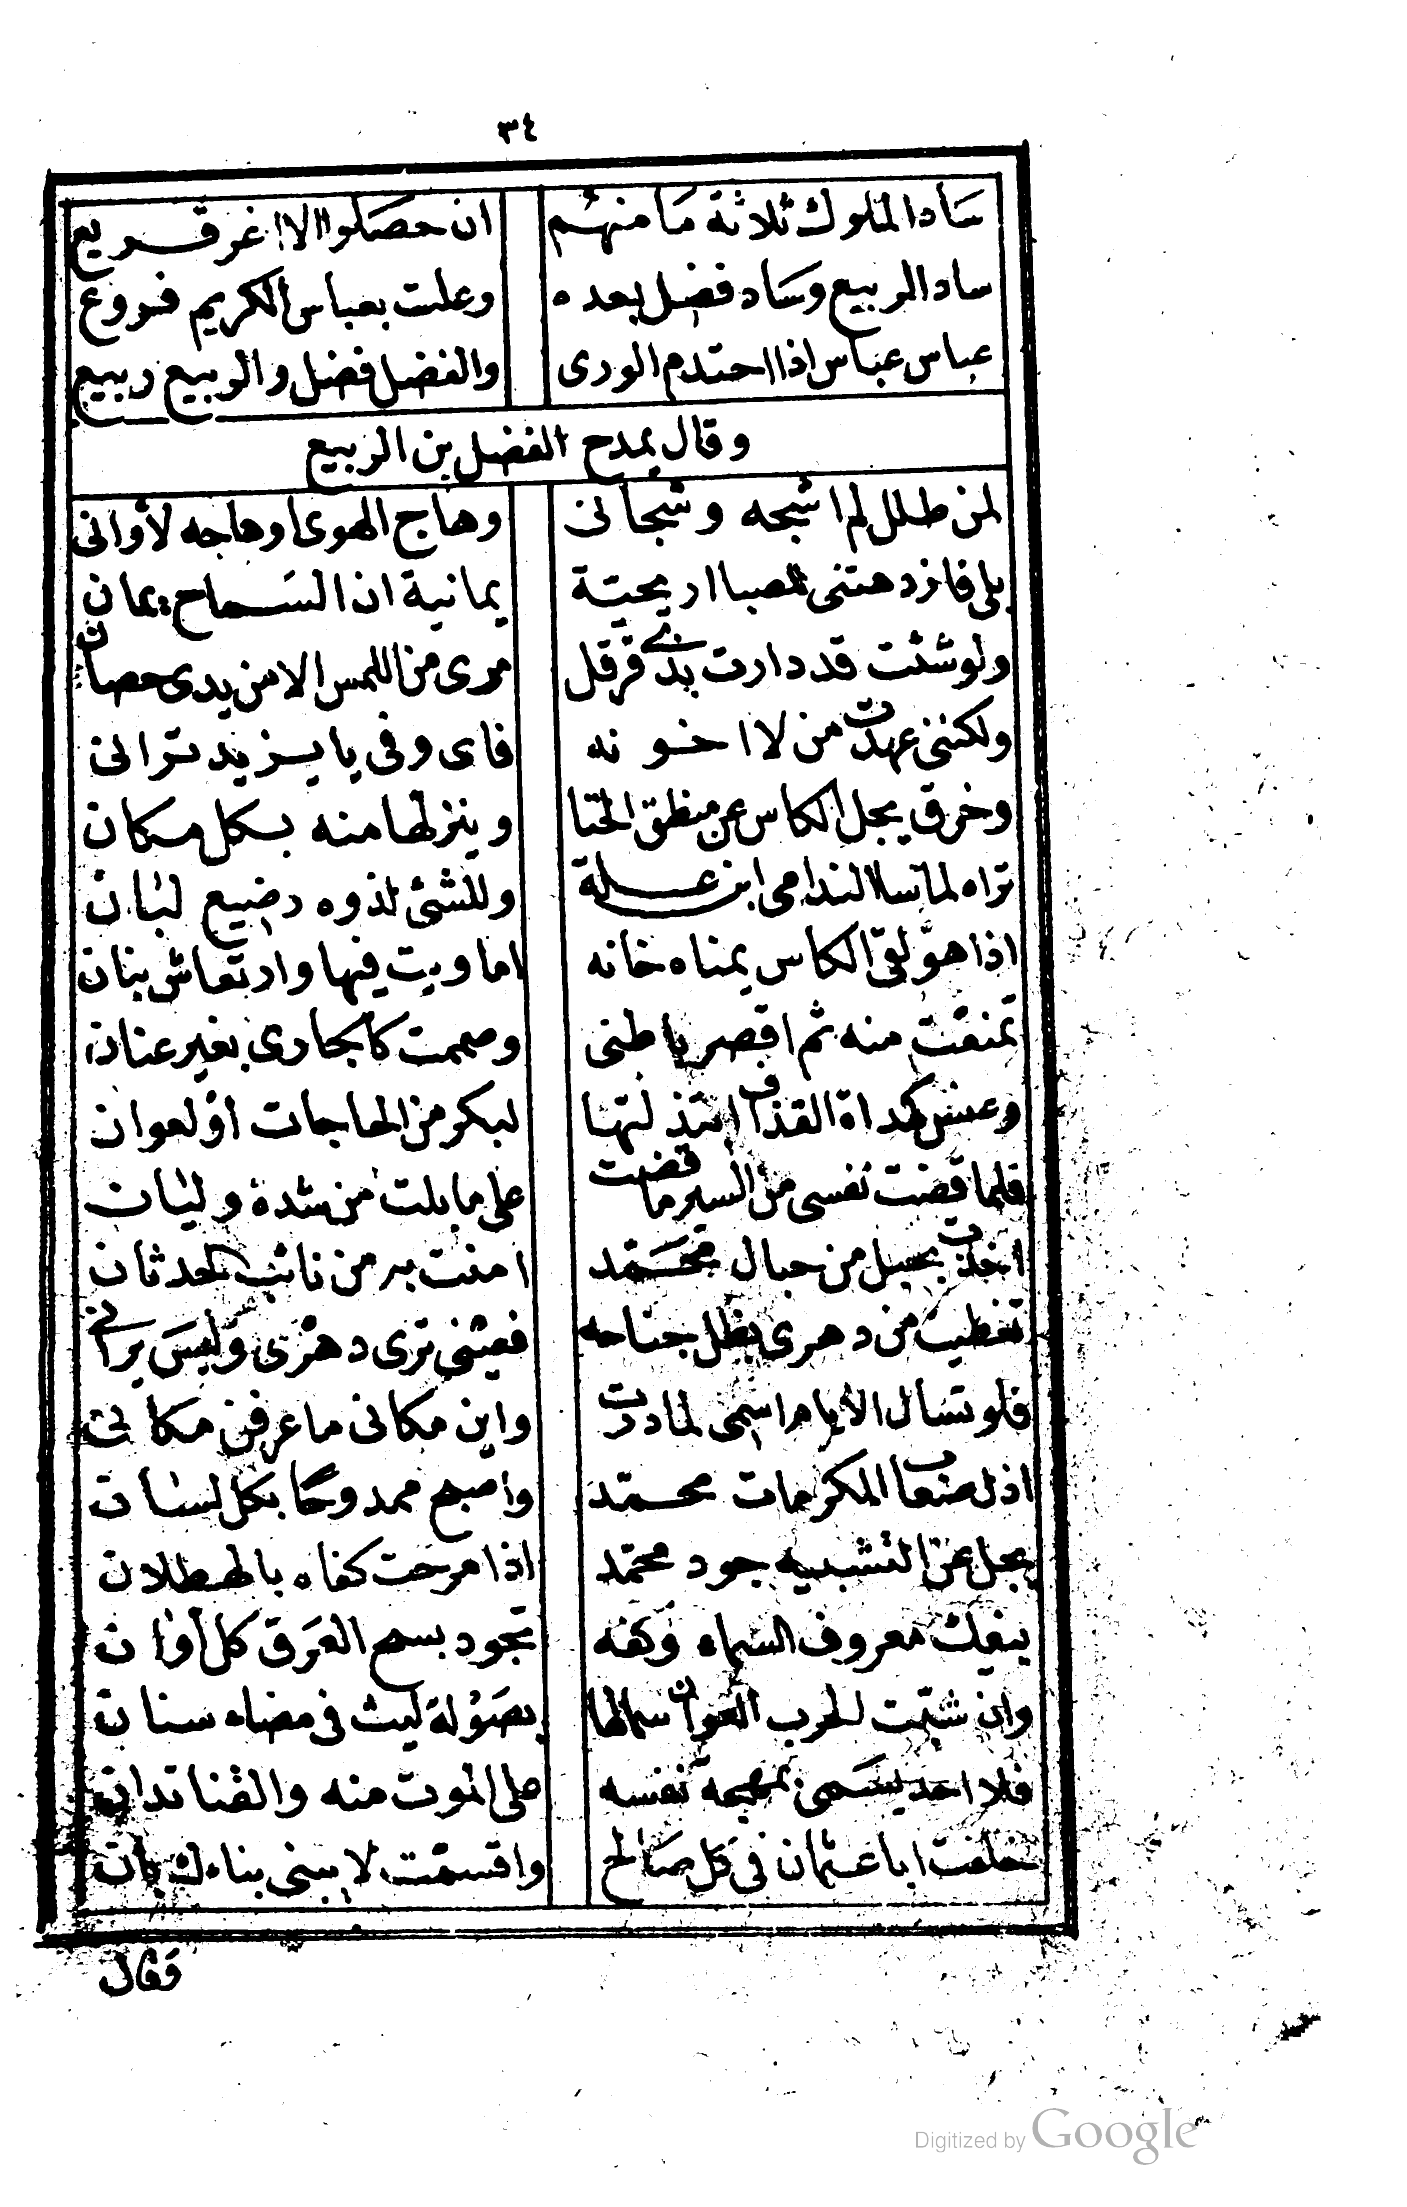 ٣٤
ساد الملوك ثلاثة ما منهم ان حصلوا الا اغر قريع
ساد الربيع وساد فضل بعده وعلت بعباس الكريم فروع
عباس عباس اذا احتدم الورى والفضل فضل والربيع ربيع
وقال يمدح الفضل بن الربيع
لمن طلل لم اشجه وشجانى وهاج الهوى اوهاجه لأوانى
بلى فازدهتنى للصبا اريحيّة يمانية ان السَماح يمان
ولوشئت قد دارت بذى قرقل مرى من اللمس الا من يدى حصان
ولكننى عهدت من لا اخونه فاى وفى يا يزيد ترانى
وخرق يجل الكاس عن منطق الخنا وينزلها منه بكل مكان
تراه لما ساء الندامى ابن علة وللشئ لذوه رضيع لبان
اذا هو لقى الكاس يمناه خانه اماويت فيها وارتعاش بنان
تمنعت منه ثم اقصر باطنى وصممت كالجارى بغير عنان
وعنس كمداة القذاف ابتذلتها لبكر من الحاجات او لعوان
فلما قضت نفسى من السير ما قضت على ما بلت من شدة وليان
اخذت بحبل من حبال محمّد امنت به من نائب الحدثان
تغطيت من دهرى بظل جناحه فعينى ترى دهرى وليس يرانى
فلو تسأل الأيام اسمى لما درت واين مكانى ما عرفن مكانى
اذل صعاب المكرمات محمّد واصبح ممدوحا بكل لسان
يجل عن التشبيه جود محمّد اذا مرحت كفاه بالهطلان
يغبك معروف السماء وكفه تجود بسح العَرَق كل أوان
وان شبّت الحرب العوان سمالها بصَوْلة ليث فى مضاء سنان
فلا احد يسمى بمهجة نفسه على الموت منه والقنا تدان
خلفت ابا عثمان فى كل صالح واقسمت لا يبنى بناءك بان
فقال
Digitized by Google